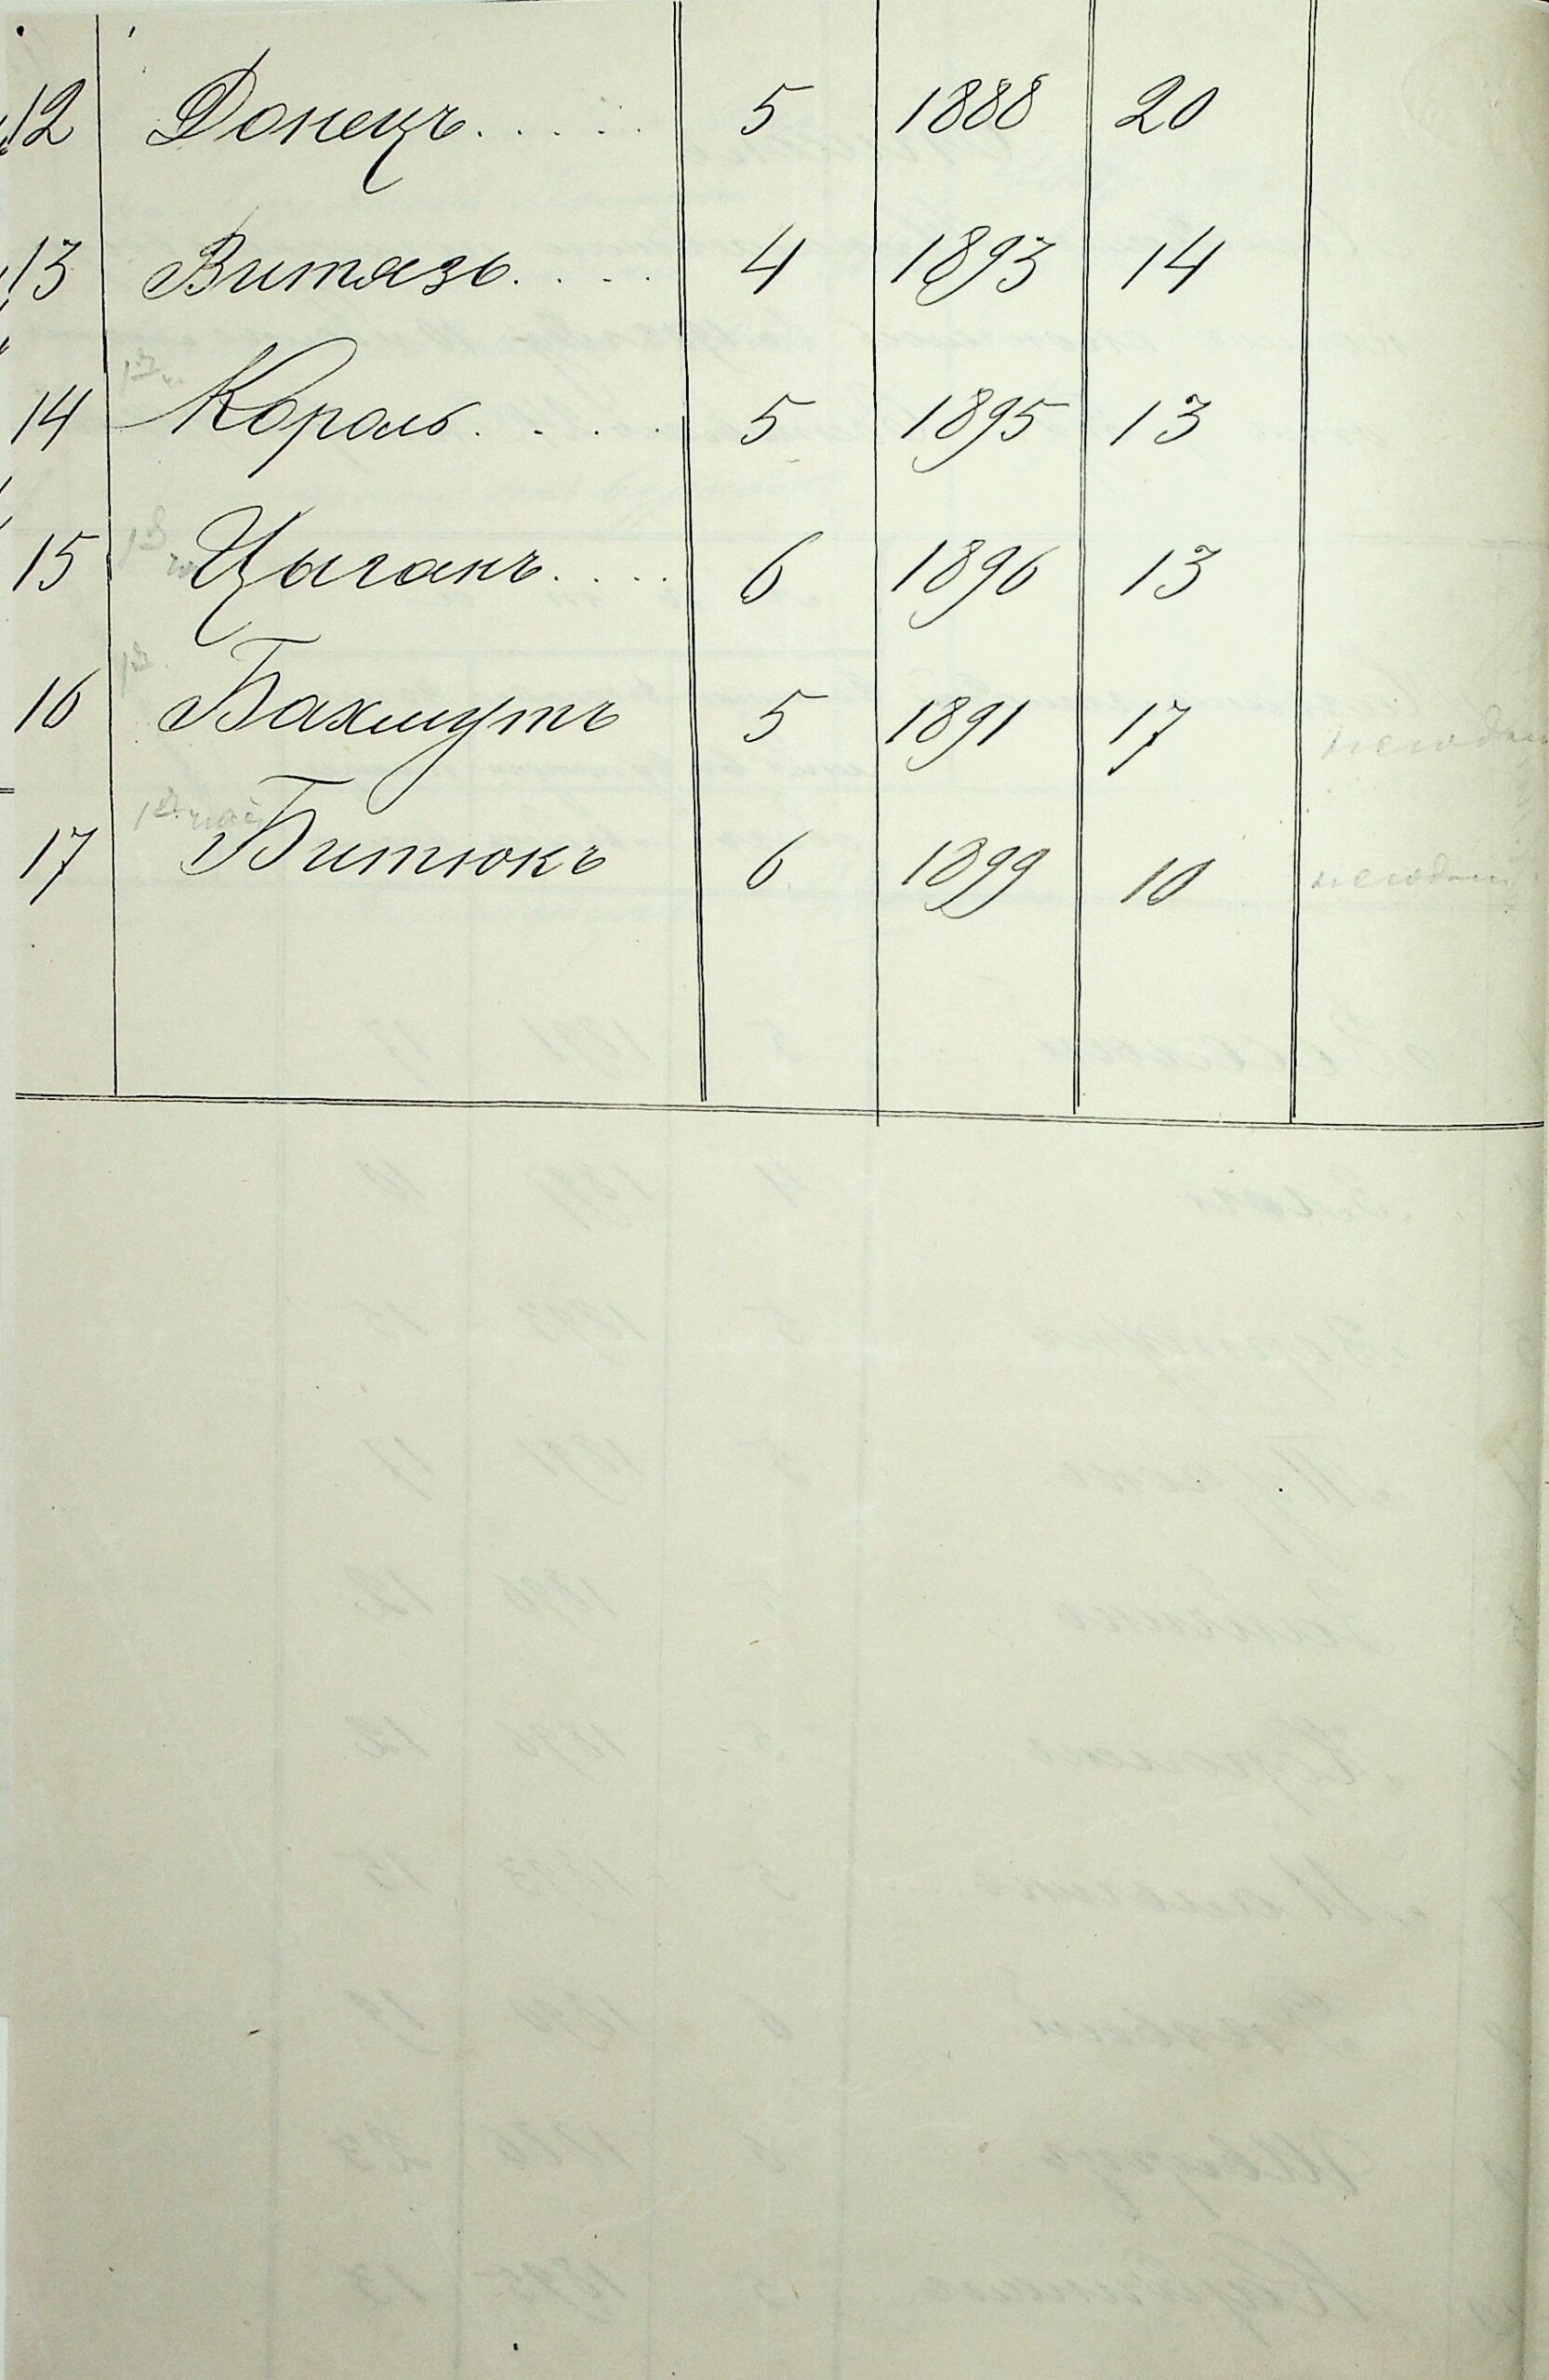 12 Донецъ..... 5 1888 20
13 Витязь.... 4 1893 14
14 Король.... 5 1895 13
15 Цыганъ.... 6 1896 13
16 Бахмутъ 5 1891 17
17 Битюкъ 6 1899 10